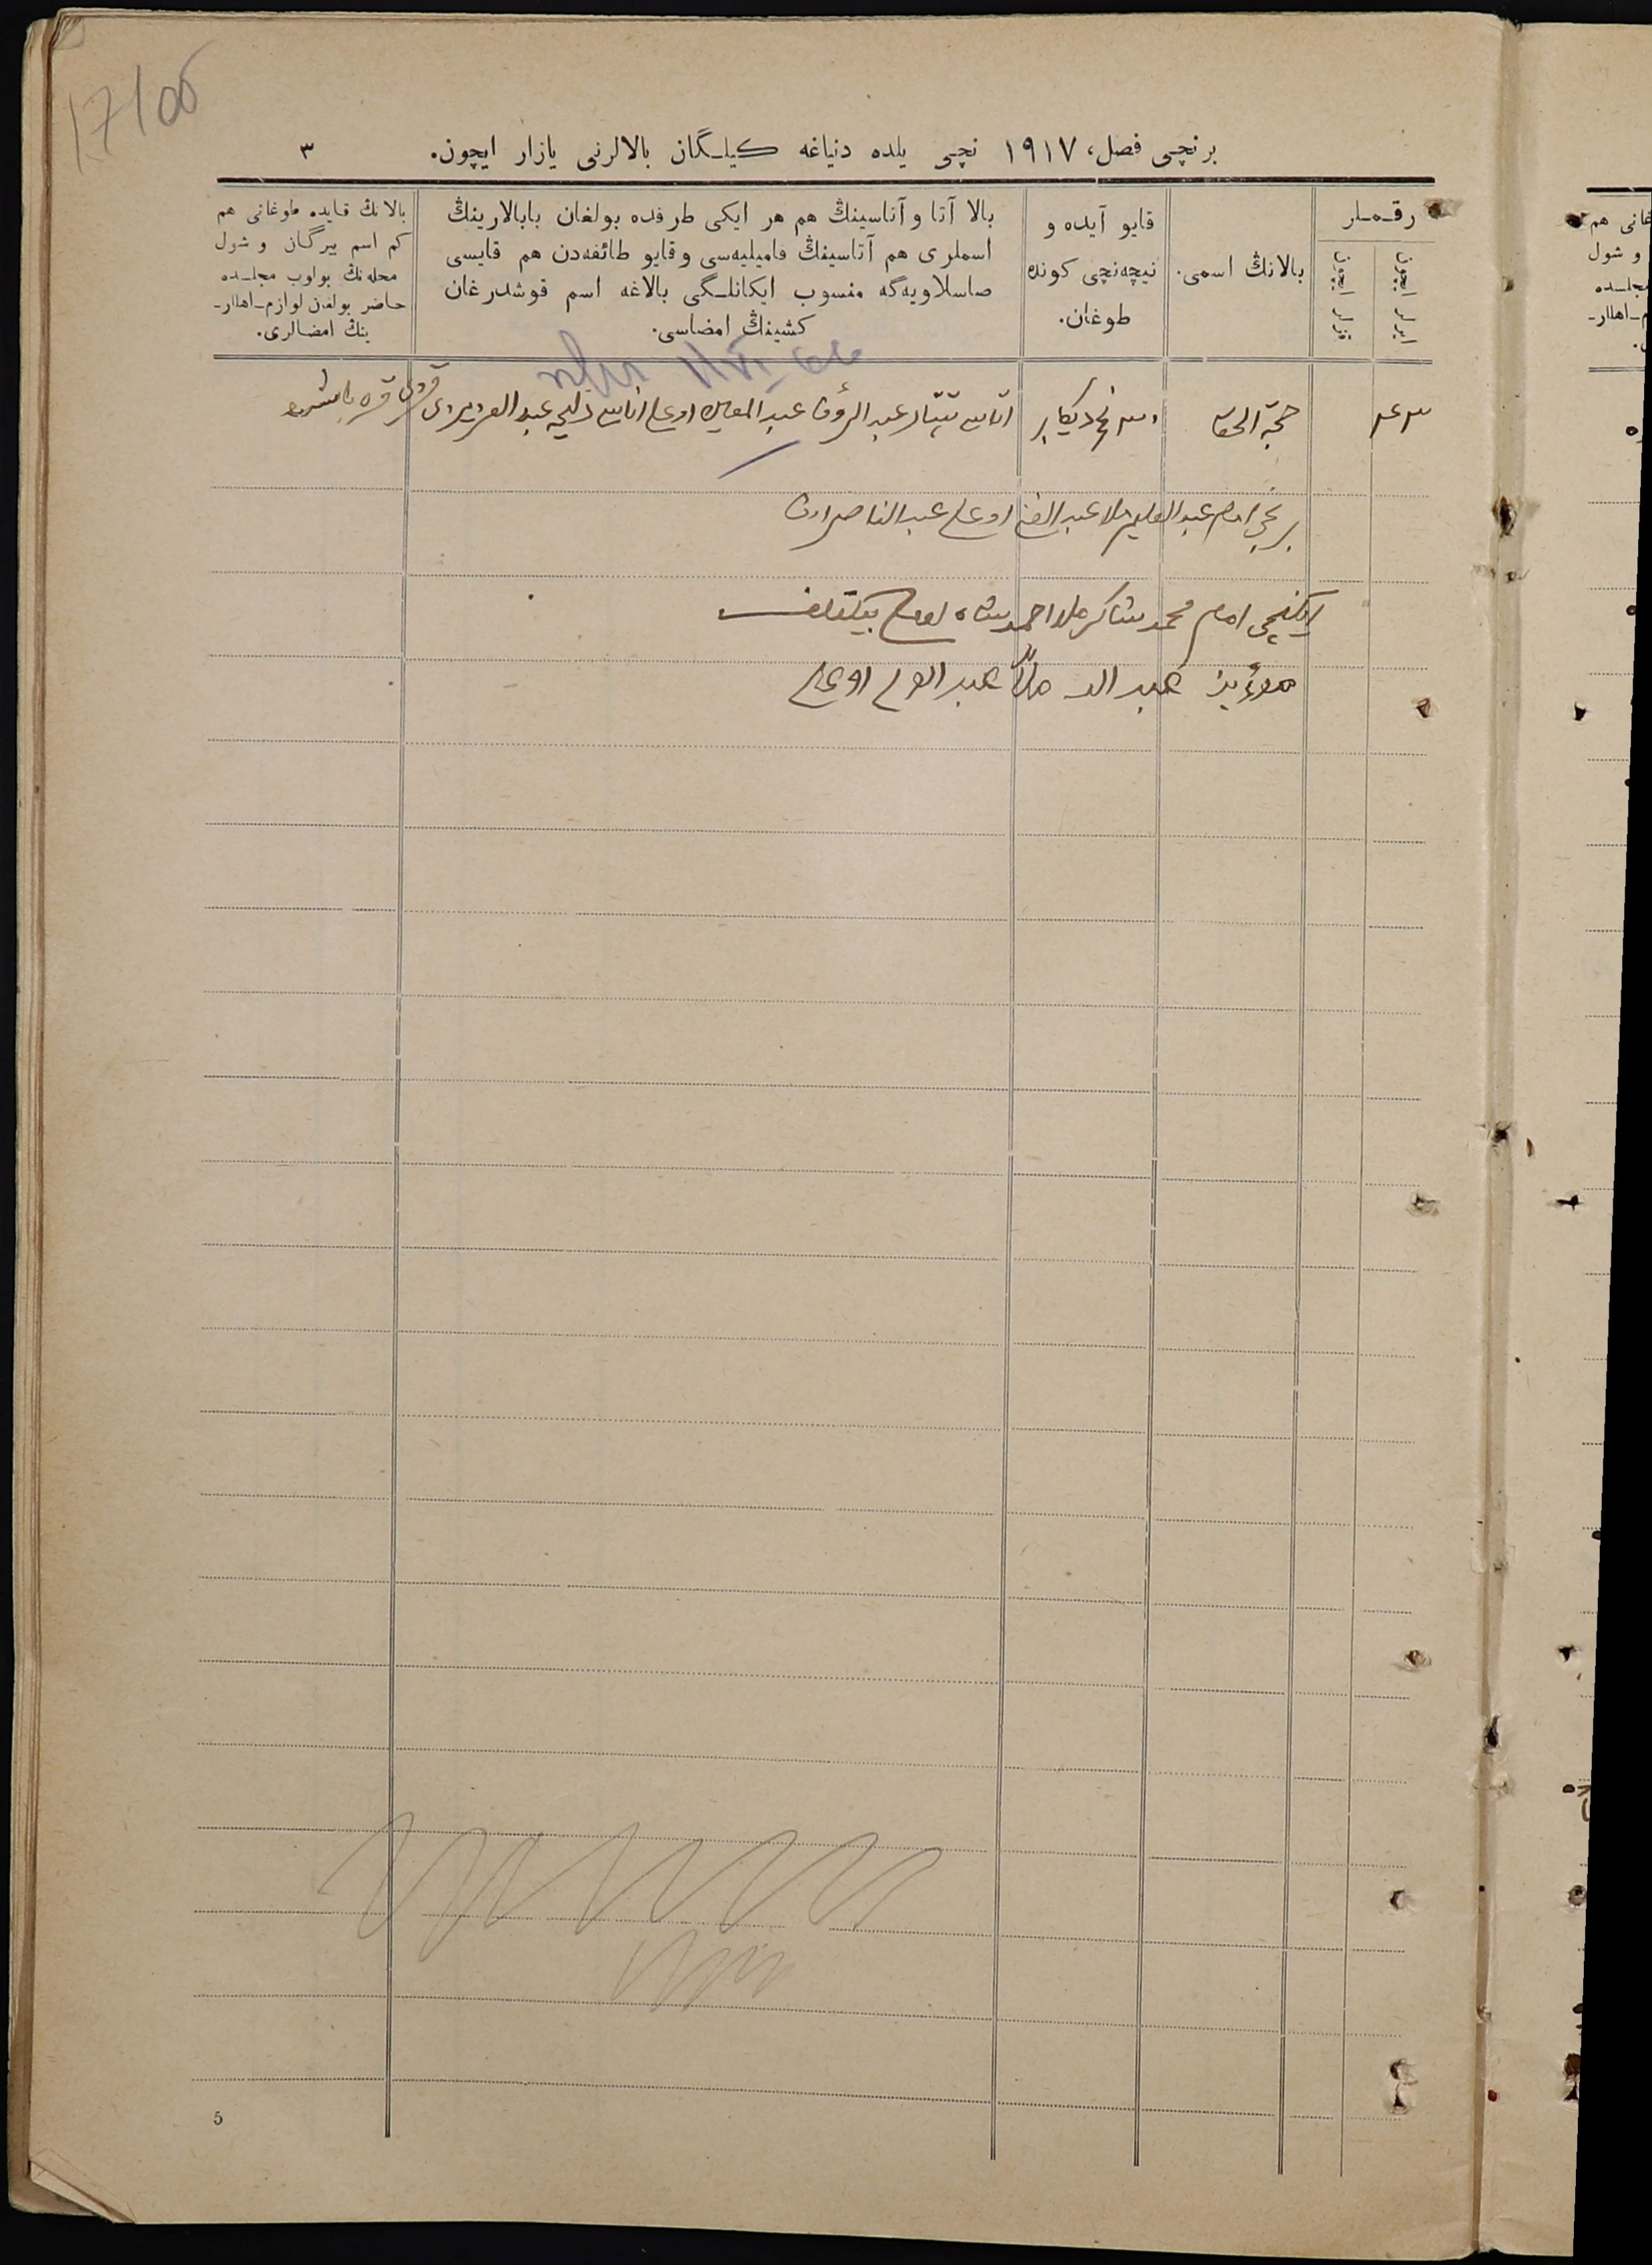 17/об
برنچی فصل، ۱۹۱۷ نچی یلده دنیاغه کیلـگان بالالرنی یازار ایچون.
۳
رقـمـلر
ایرلر ایچون
قزلر ایچون
بالانڭ اسمی.
قایو آیده و
نیچه‌نچی کونده
طوغان.
بالا آتا و آناسینڭ هم هر ایکی طرفده بولغان بابالارینڭ
اسملری هم آتاسینڭ فامیلیه‌سی و قایو طائفه‌دن هم قایسی
صاسلاویه‌گه منسوب ایکانلـگی بالاغه اسم قوشدرغان
کشینڭ امضاسی.
بالانڭ قایده طوغانی هم
کم اسم بیرگان و شول
محله‌نڭ بولوب مجلـده
حاضر بولغان لوازم-اهللر-
ینڭ امضالری.
۳۴۳
۳۰ نچی دیکابر
آتاسی عبد الرؤف عبد المعین اوغلی اناسی عبد العزیز
برنچی امام عبد العلیم ملا عبد الغنی اوغلی عبد الناصروف
ایکنچی امام محمد شاکر ملا احمد شاه اوغلی
مؤذن عبد الله ملا عبد الولی اوغلی
5